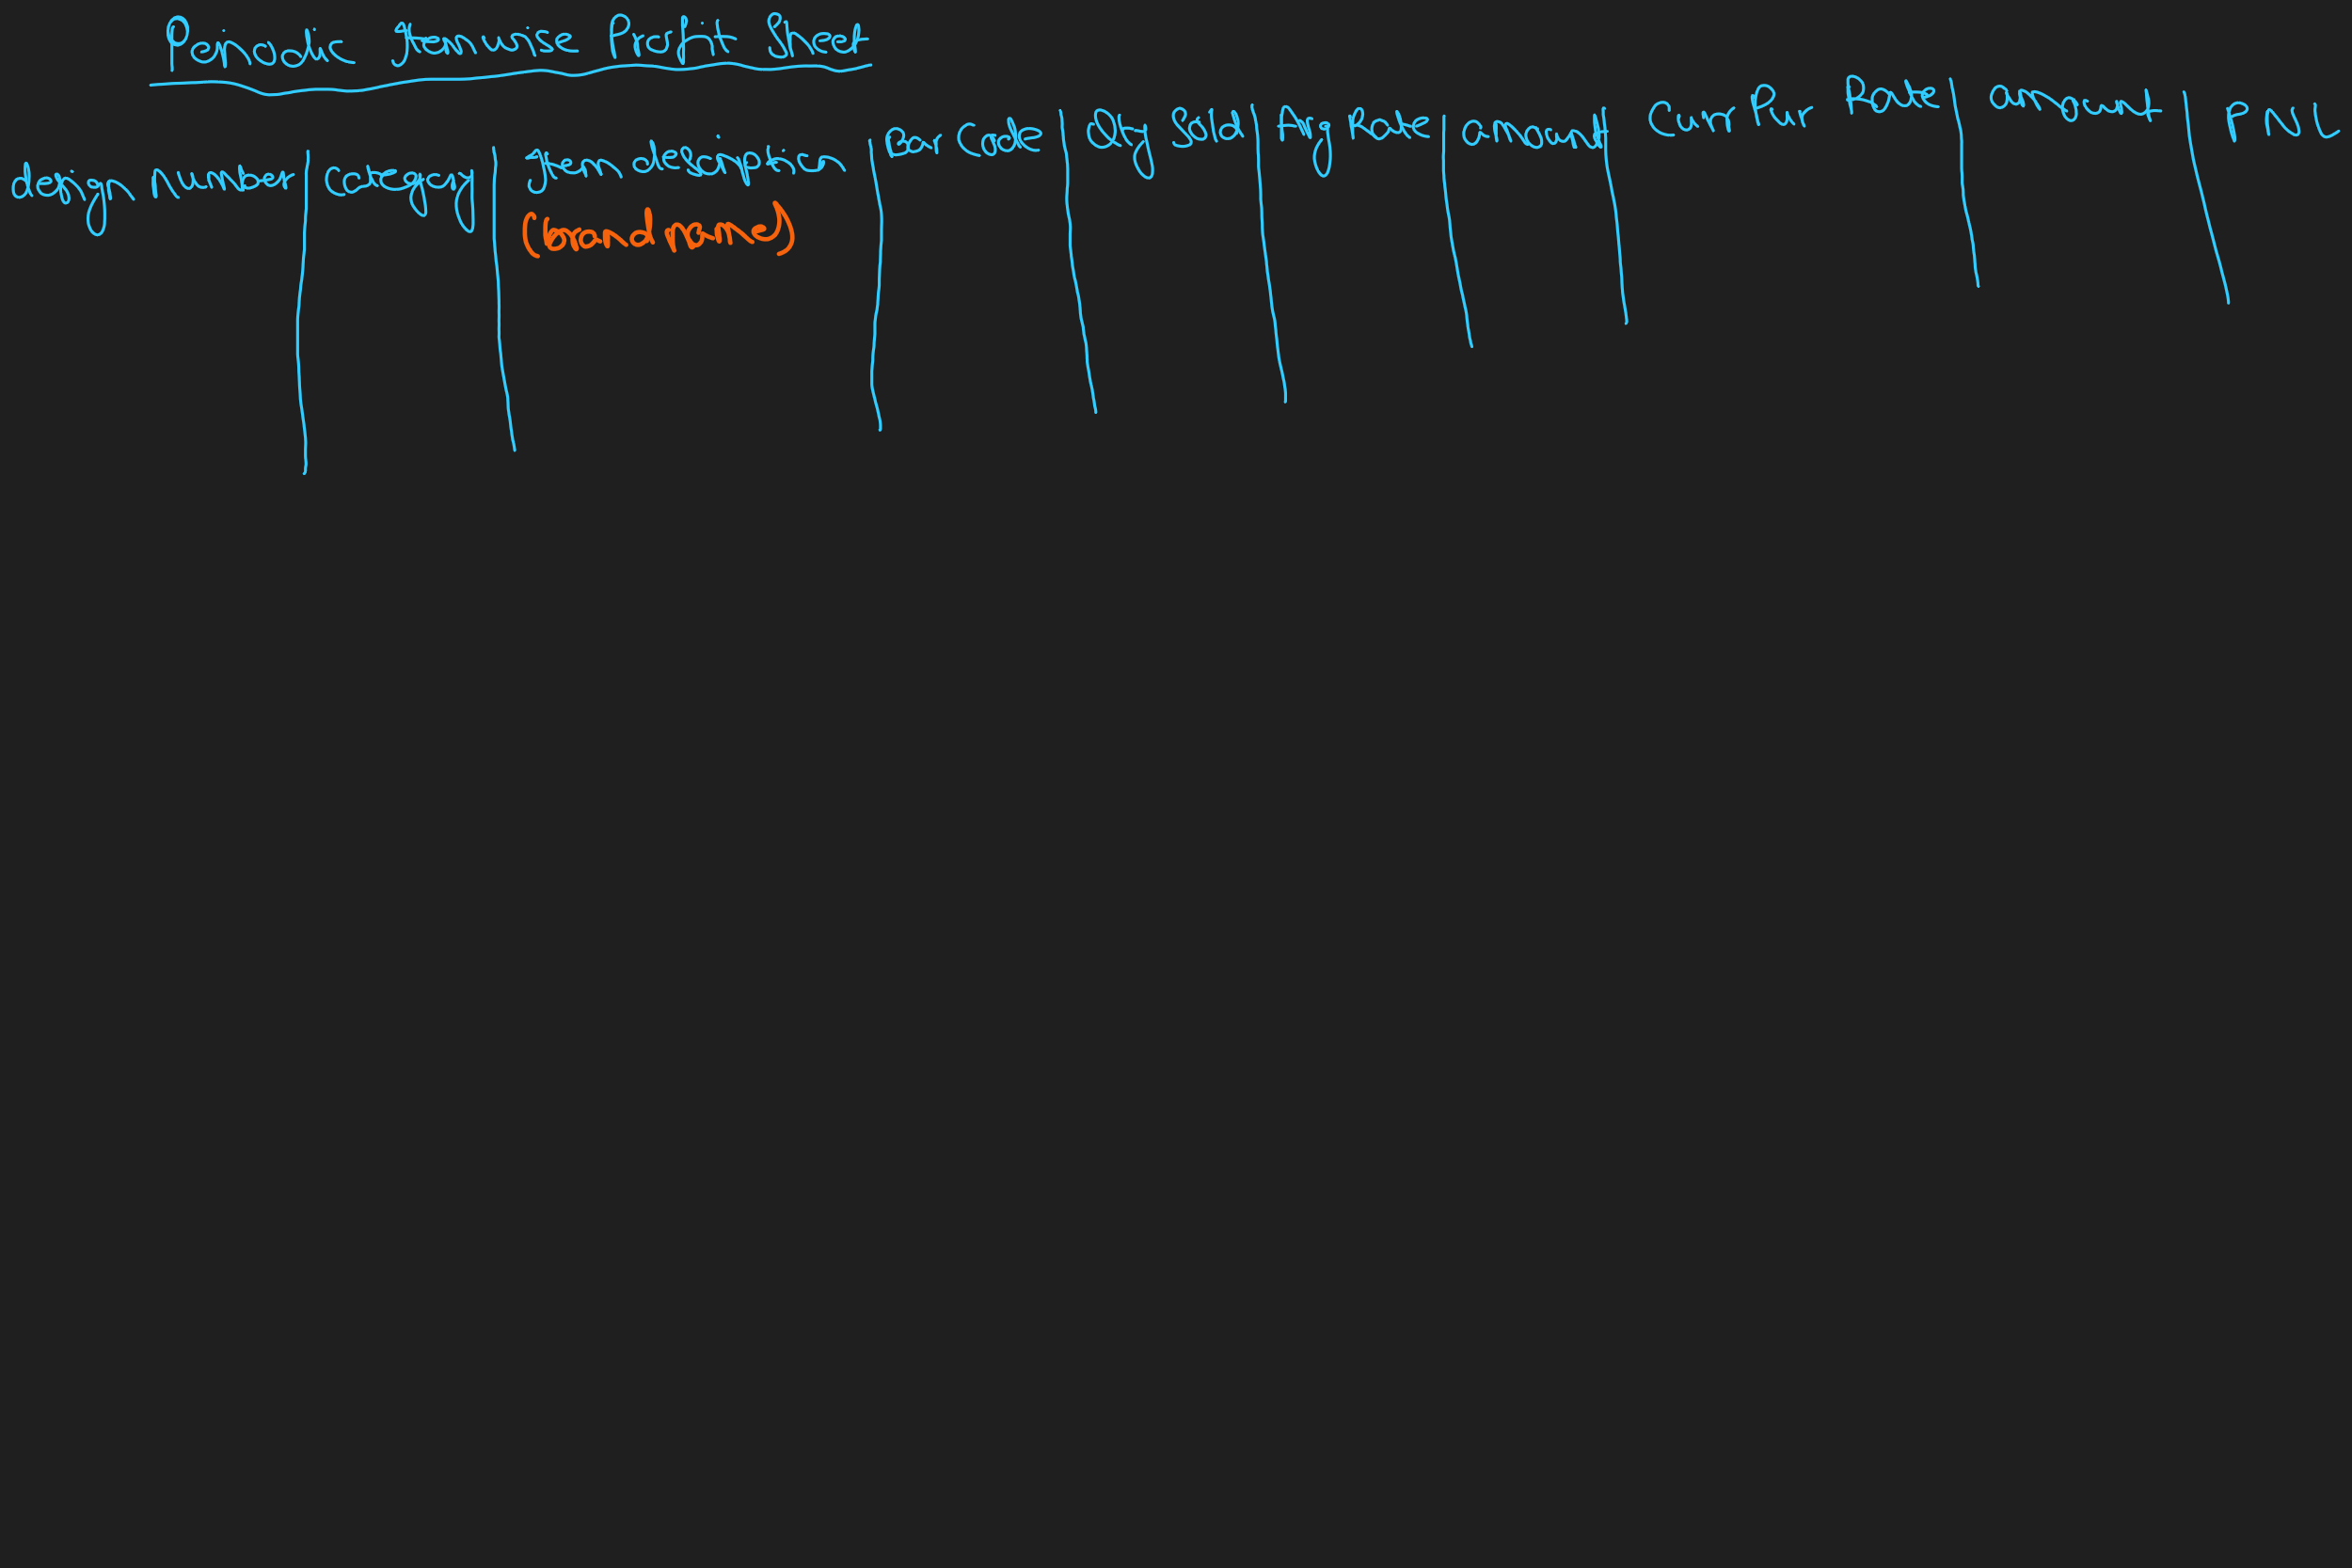 Periodic Item wise Profit Sheet
design number category item description Bar Code Qty Sold Avg Rate amount Curr Pur Rate amount P n L
(brandname)